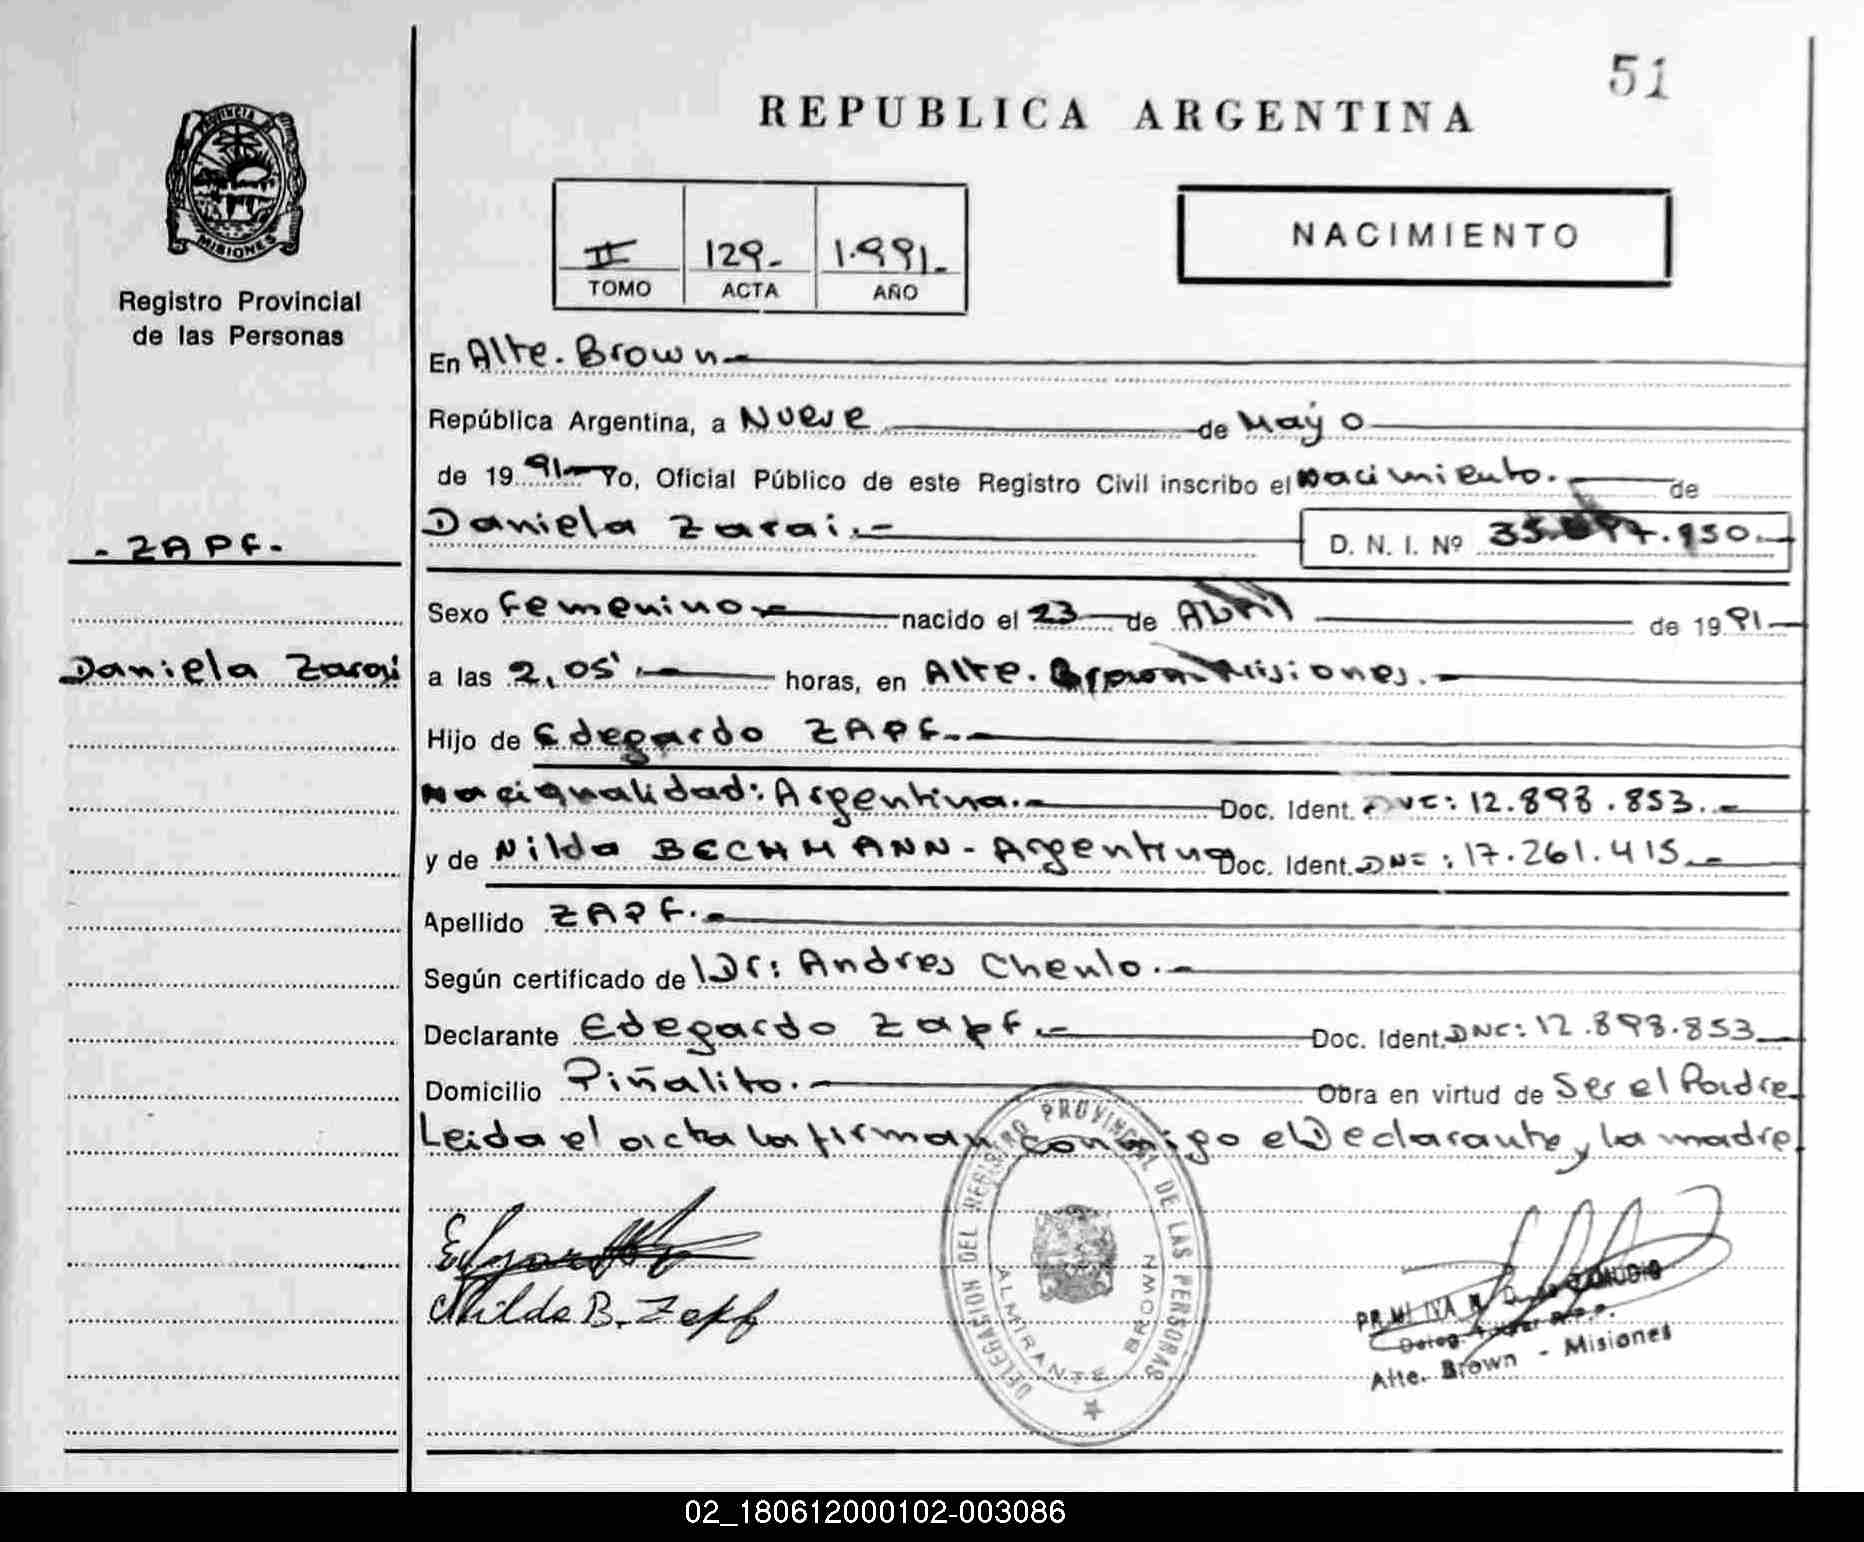 51
REPUBLICA ARGENTINA
PROVINCIA DE
MISIONES
Registro Provincial
de las Personas
II 129- 1.991.-
TOMO ACTA AÑO
NACIMIENTO
En Alte. Brown.-
República Argentina, a Nueve de Mayo
de 19 91 Yo, Oficial Público de este Registro Civil inscribo el Nacimiento.- de
- ZAPF -
Daniela Zarai.- D. N. I. Nº .950.-
Sexo Femenino.- nacido el 23 de Abril de 19 91
Daniela Zarai
a las 2,05'.- horas, en Alte. Brown Misiones.-
Hijo de Edegardo ZAPF.-
Nacionalidad: Argentina.- Doc. Ident. DNI: 12.898.853.-
y de Nilda BECHMANN - Argentina Doc. Ident. DNI: 17.261.415.-
Apellido ZAPF.-
Según certificado de Dr: Andres Chenlo.-
Declarante Edegardo Zapf.- Doc. Ident. DNI: 12.898.853
Domicilio Piñalito.- Obra en virtud de Ser el Padre
Leida el acta la firman conmigo el Declarante y la madre.
Nilda B. Zapf
DELEGACION DEL REGISTRO PROVINCIAL DE LAS PERSONAS
ALMIRANTE BROWN
PRIMITIVA
Alte. Brown - Misiones
02_180612000102-003086